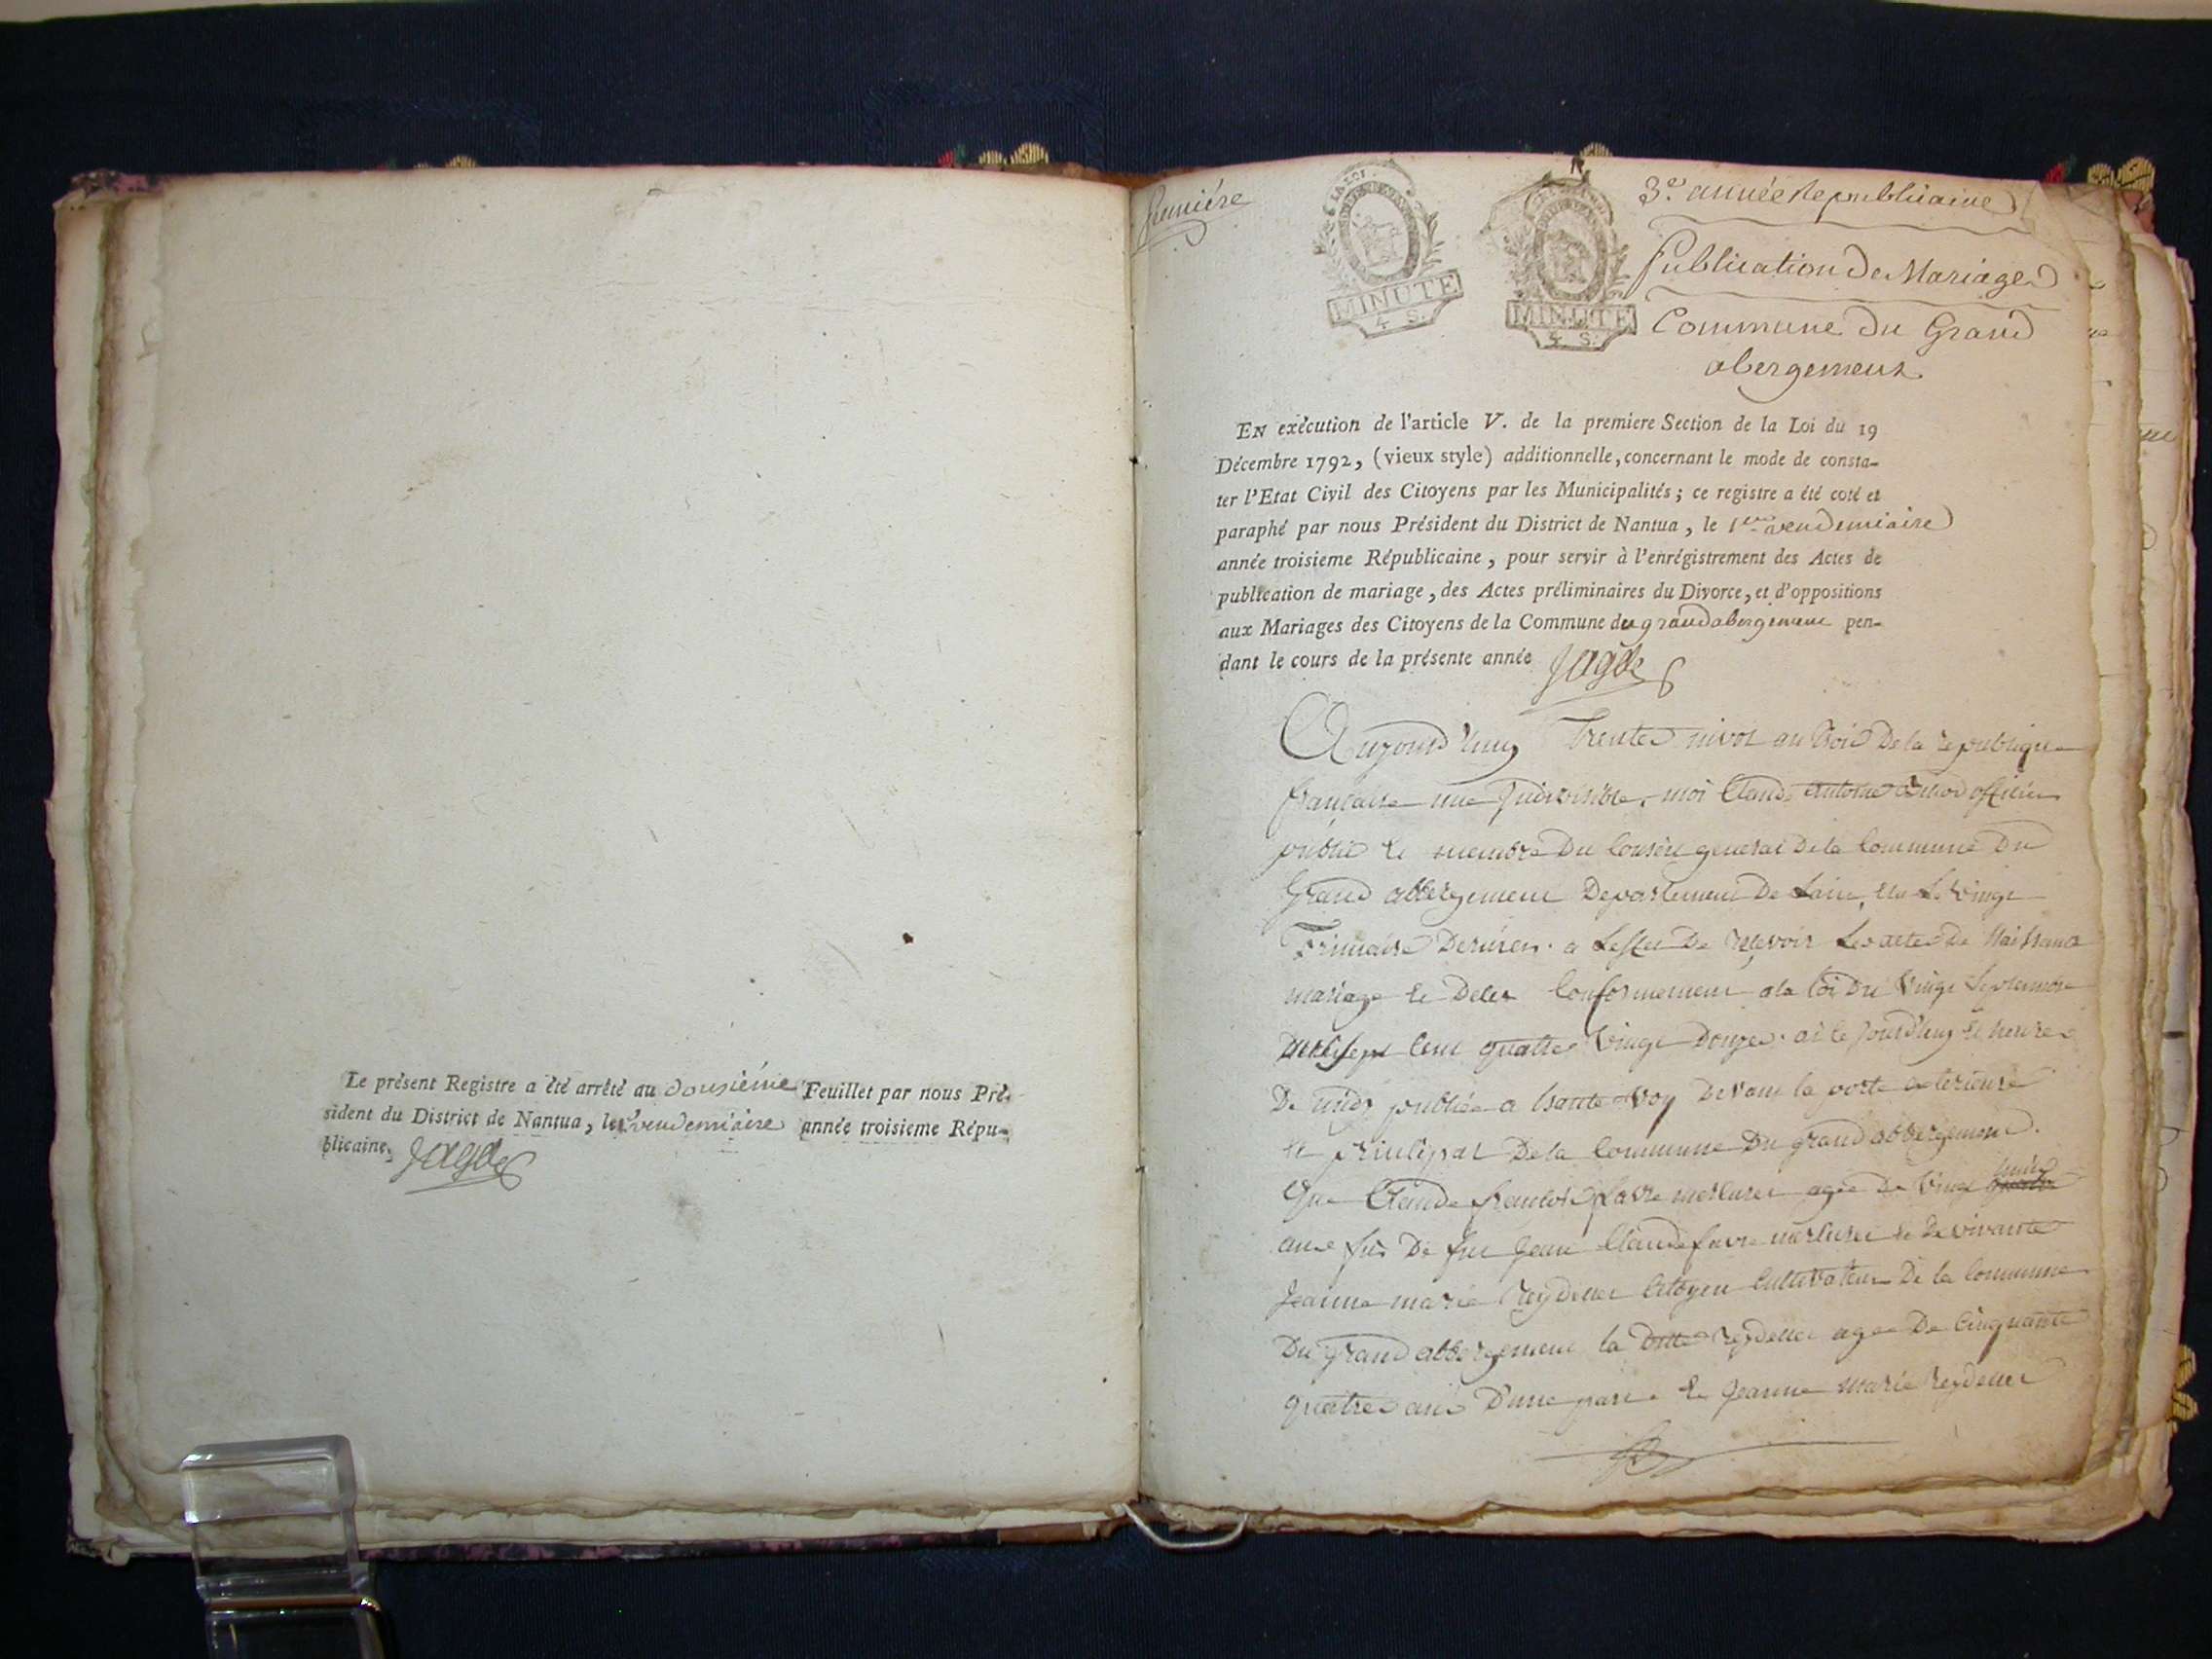 Le présent Registre a été arrêté au dousiéme Feuillet par nous Pré-
sident du District de Nantua, le vendemiaire année troisieme Répu-
blicaine.
premiére
LA LOI
MINUTE
4 S.
MINUTE
4 S.
3e. année Republicaine
Publication de Mariage
Commune du Grand
abergement
EN exécution de l'article V. de la premiere Section de la Loi du 19
Décembre 1792, (vieux style) additionnelle, concernant le mode de consta-
ter l'Etat Civil des Citoyens par les Municipalités ; ce registre a été coté et
paraphé par nous Président du District de Nantua, le 1er vendemiaire
année troisieme Républicaine, pour servir à l'enrégistrement des Actes de
publication de mariage, des Actes préliminaires du Divorce, et d'oppositions
aux Mariages des Citoyens de la Commune du grand abergement pen-
dant le cours de la présente année
Aujourd'huy Trente nivos an trois De la republique
francaise une Indivisible, moi Claude antoine officier
public et membre Du Conseil general De la Commune Du
Grand abbergement Departement De Lain, elu Le vingt
frimaire Dernier. a Leffet De recevoir Les actes De Naissance
mariage et Deces Conformement a la loi Du vingt Septembre
mil Sept Cent quatre vingt Douze. ai ce jourd'huy et heure
De midy publiée a haute voy Devant la porte exterieure
et principal De la Commune Du grand abbergement.
Que Claude francois favre agée De vingt huit
ans fils De feu Jean Claude favre et De vivante
Jeanne marie Reydellet Citoyen Cultivateur De la Commune
Du grand abbergement la Ditte reydellet agee De Cinquante
quatre ans D'une part. et Jeanne marie Reydellet